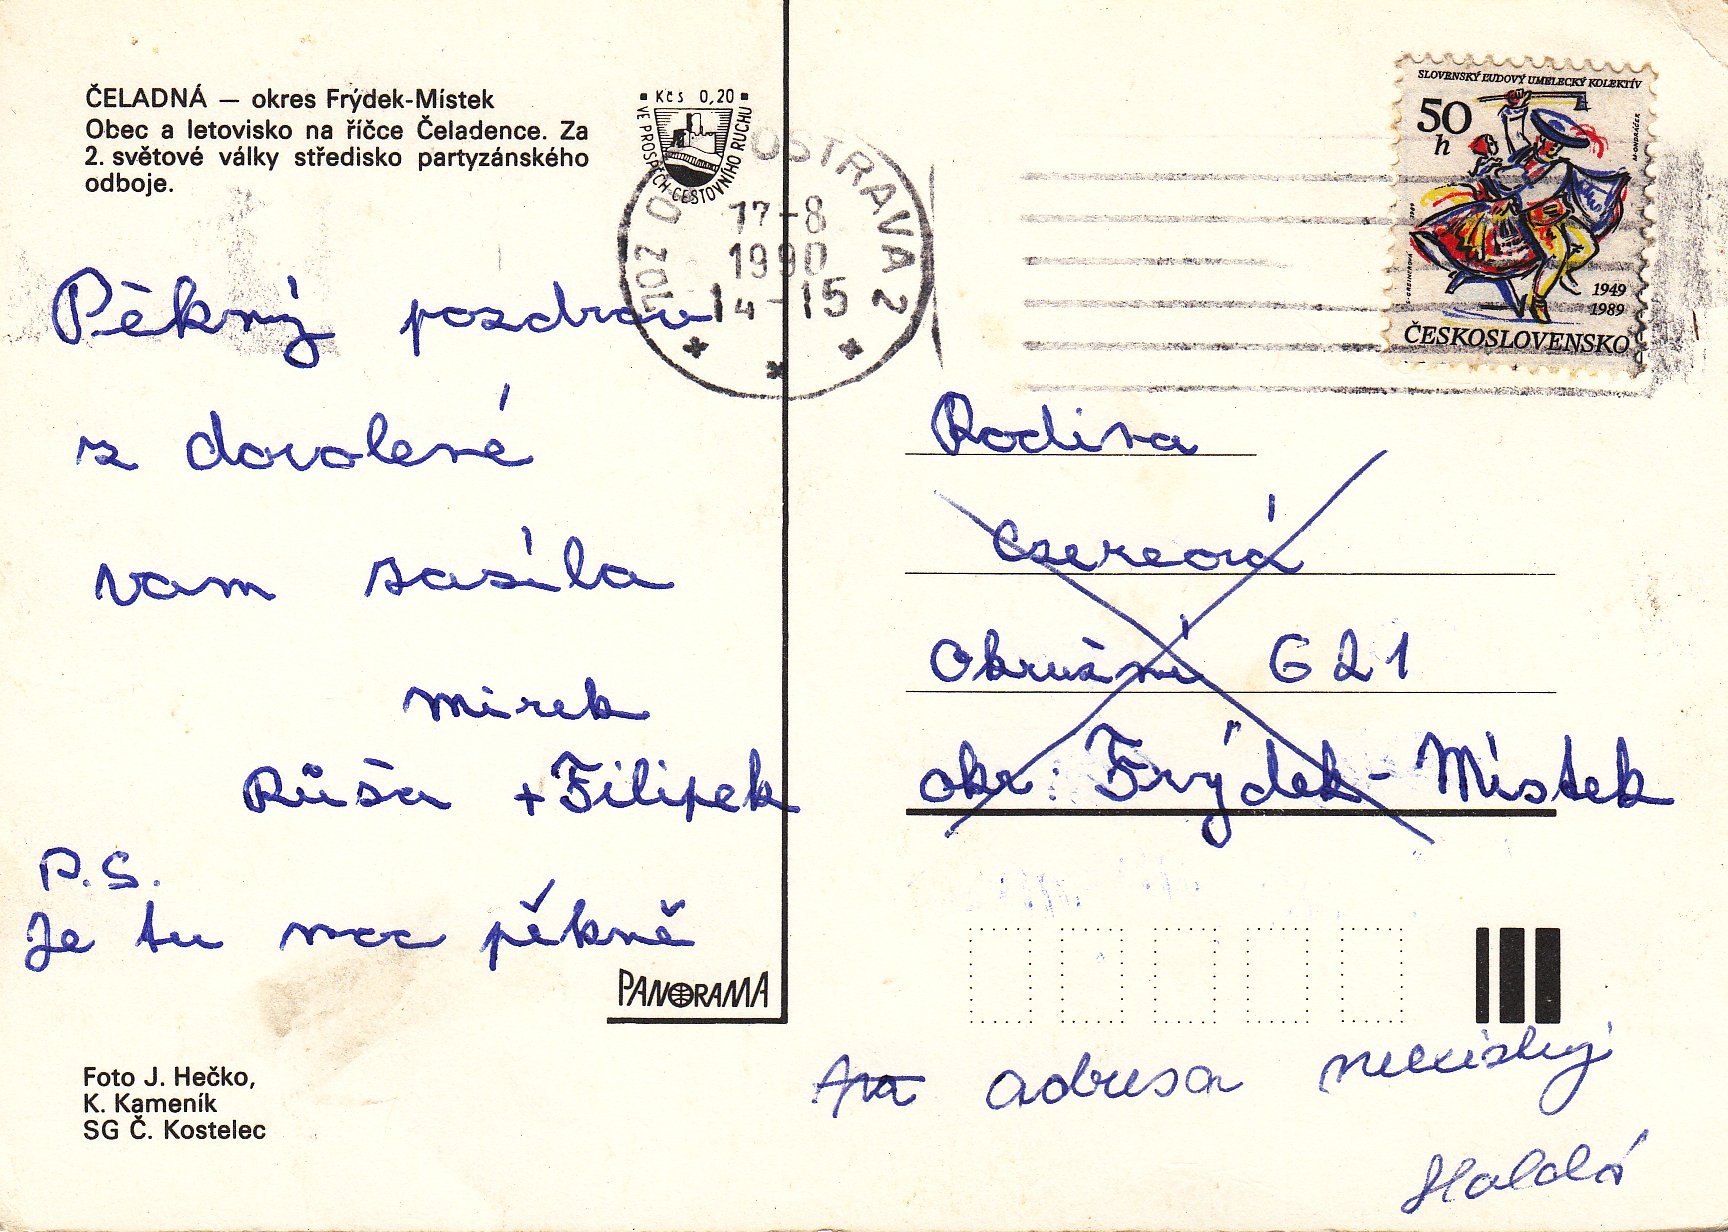 ČELADNÁ — okres Frýdek-Místek
Obec a letovisko na říčce Čeladence. Za
2. světové války středisko partyzánského
odboje.
Kčs 0,20
VE PROSPĚCH CESTOVNÍHO RUCHU
702 00 OSTRAVA 2
17-8
1990
14-15
SLOVENSKÝ ĽUDOVÝ UMELECKÝ KOLEKTÍV
50
h
M. ONDRÁČEK
1949
1989
ČESKOSLOVENSKO
Pěkný pozdrav
z dovolené
vam zasíla
Mirek
Růša + Filipek
P.S.
Je tu moc pěkně
PANORAMA
Foto J. Hečko,
K. Kameník
SG Č. Kostelec
Rodina
Okružní 621
okr: Frýdek-Místek
adresa